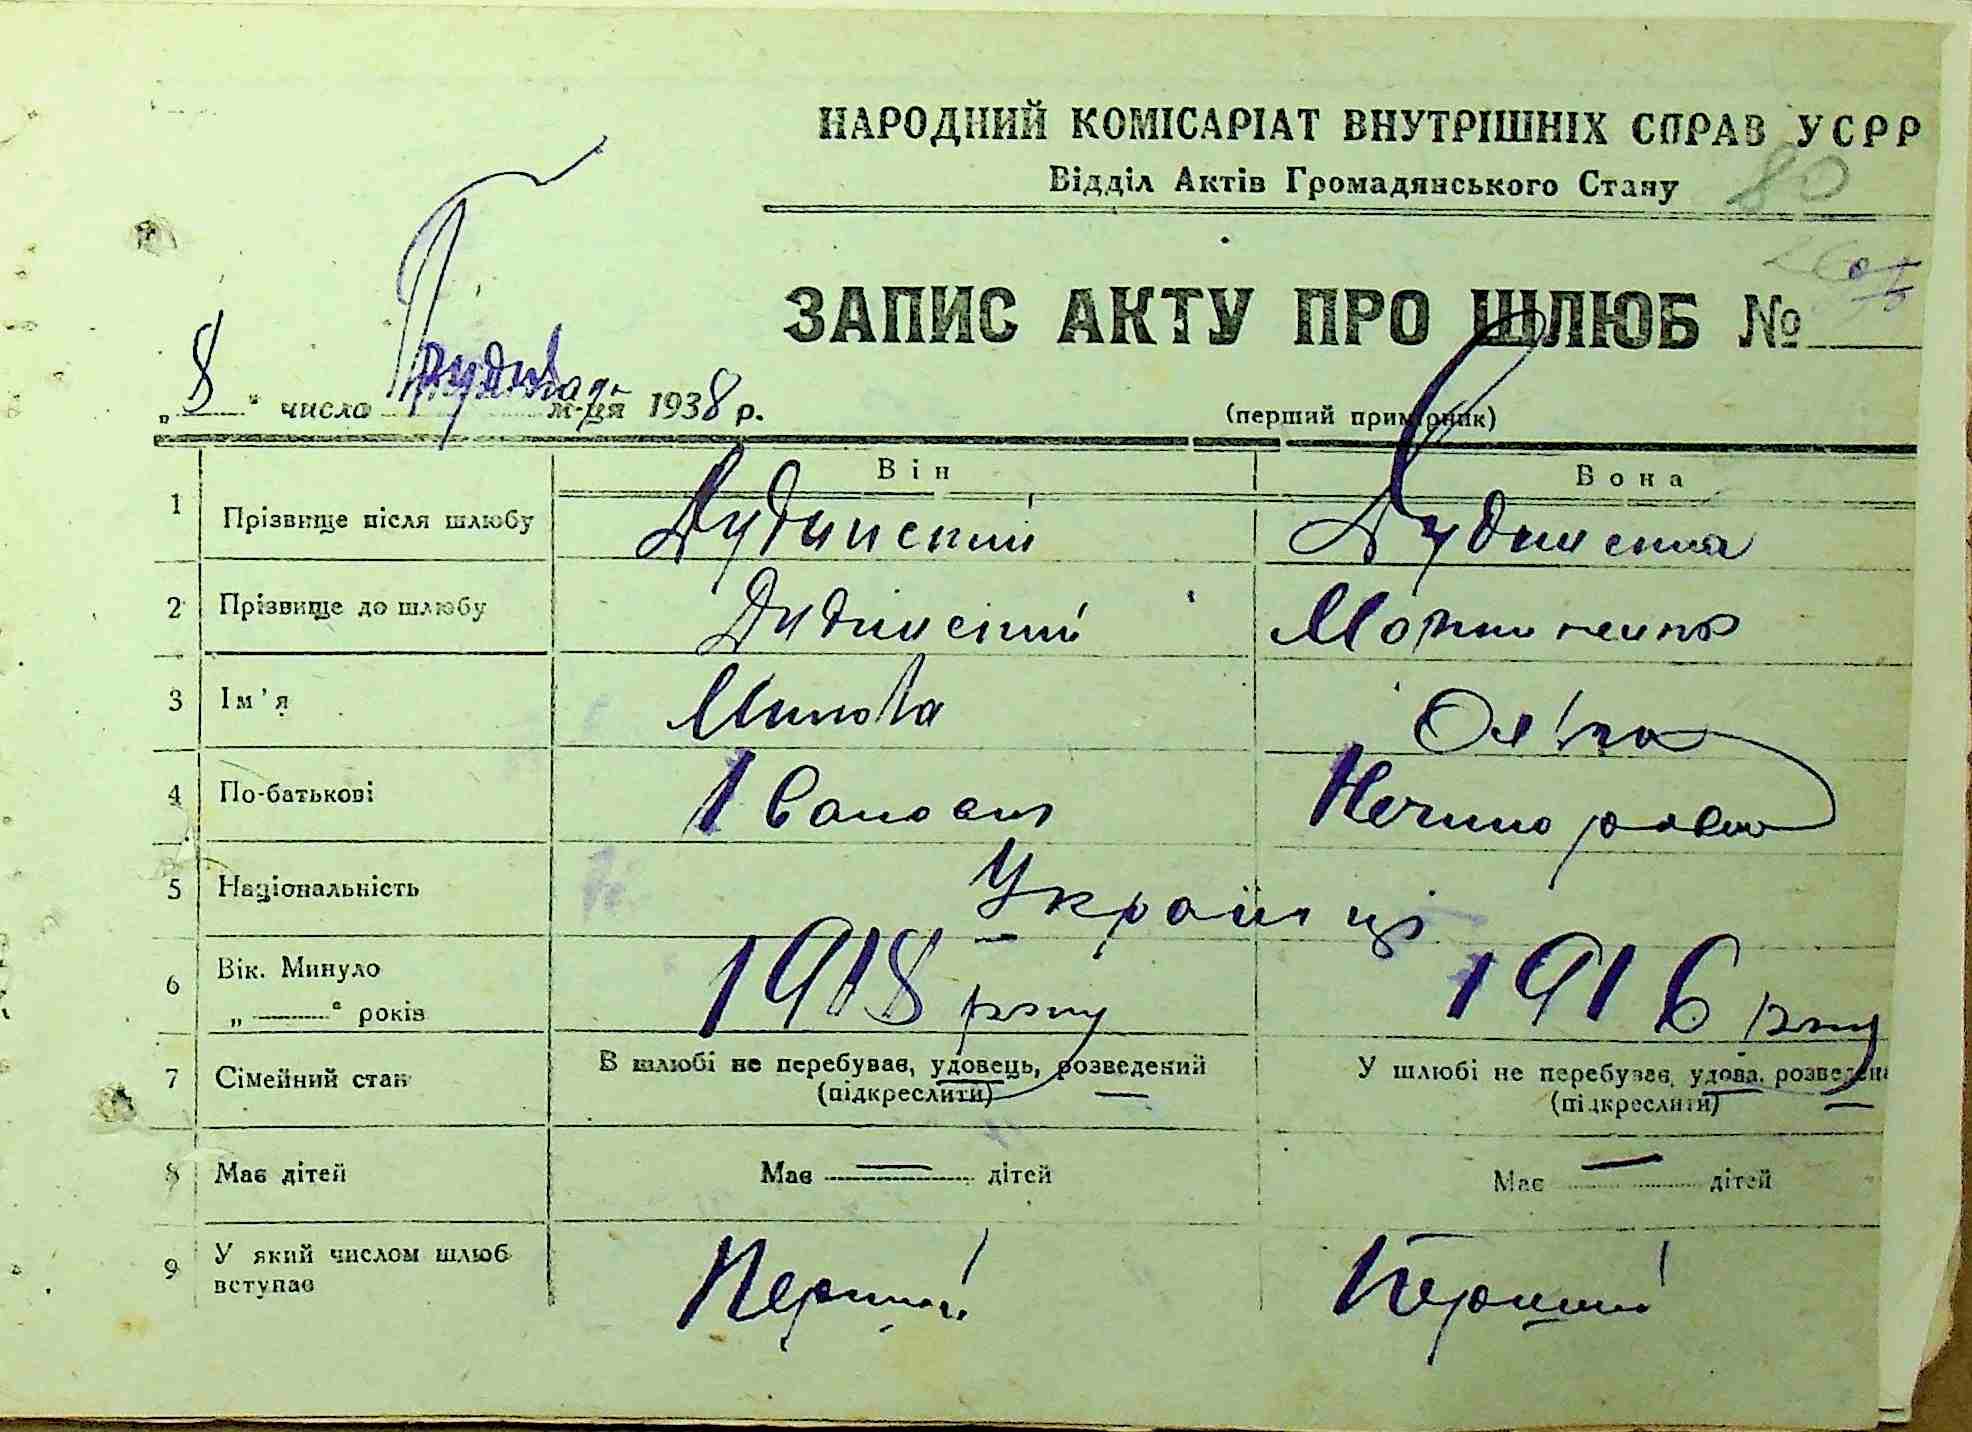 НАРОДНИЙ КОМІСАРІАТ ВНУТРІШНІХ СПРАВ УСРР
Відділ Актів Громадянського Стану 80
ЗАПИС АКТУ ПРО ШЛЮБ №
„8“ числа м-ця 1938 р.
(перший примірник)
Він Вона
1 Прізвище після шлюбу Дудинский Дудинська
2 Прізвище до шлюбу Дудинский
3 Ім'я Микола Ол'га
4 По-батькові Іванович Нечипоровна
5 Національність Українці
6 Вік. Минуло 1918 року 1916 року
„ “ років
7 Сімейний стан В шлюбі не перебуває, удовець, розведений У шлюбі не перебуває, удова, розведена
(підкреслити) (підкреслити)
8 Має дітей Має — дітей Має — дітей
9 У який числом шлюб Перший Перший
вступає